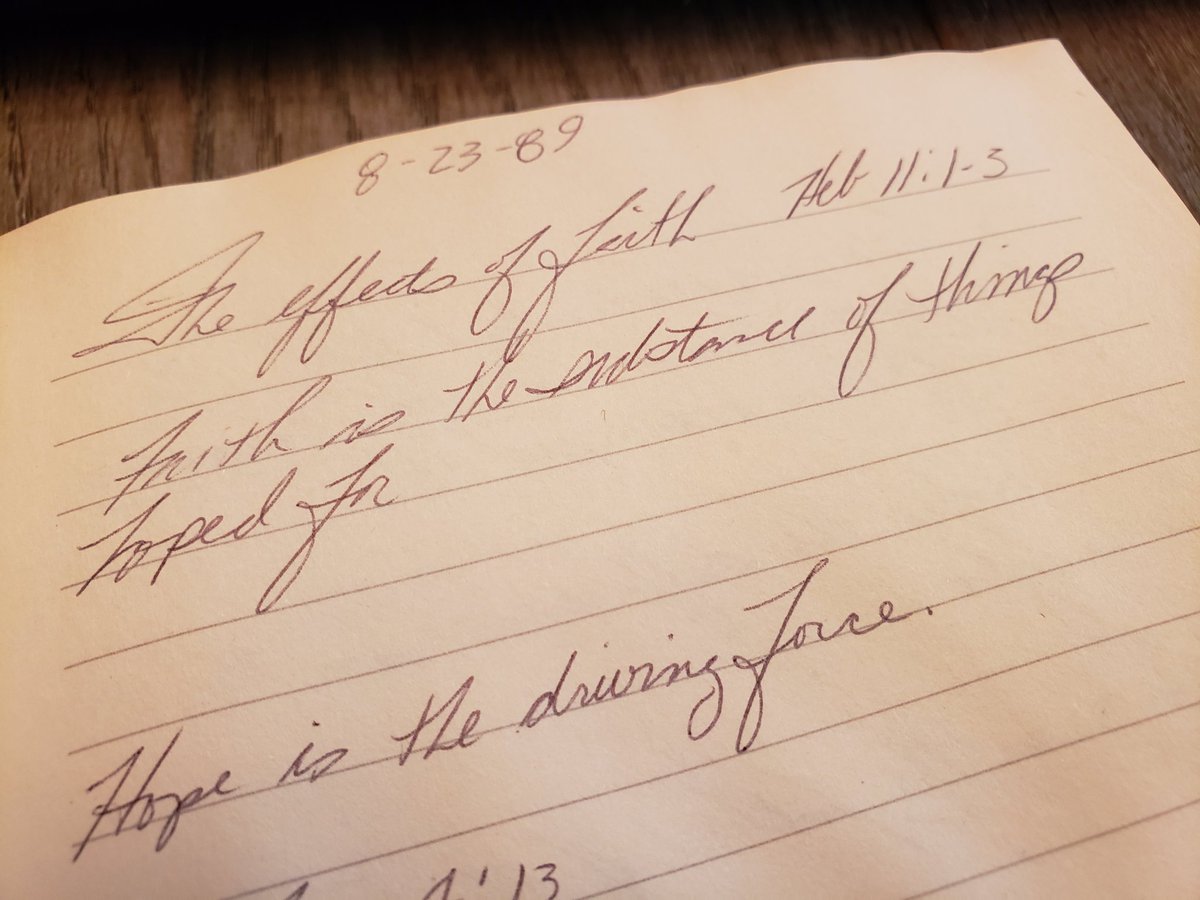 8-23-89
The effects of faith Heb 11:1-3
Faith is the substance of things
hoped for
Hope is the driving force.
13